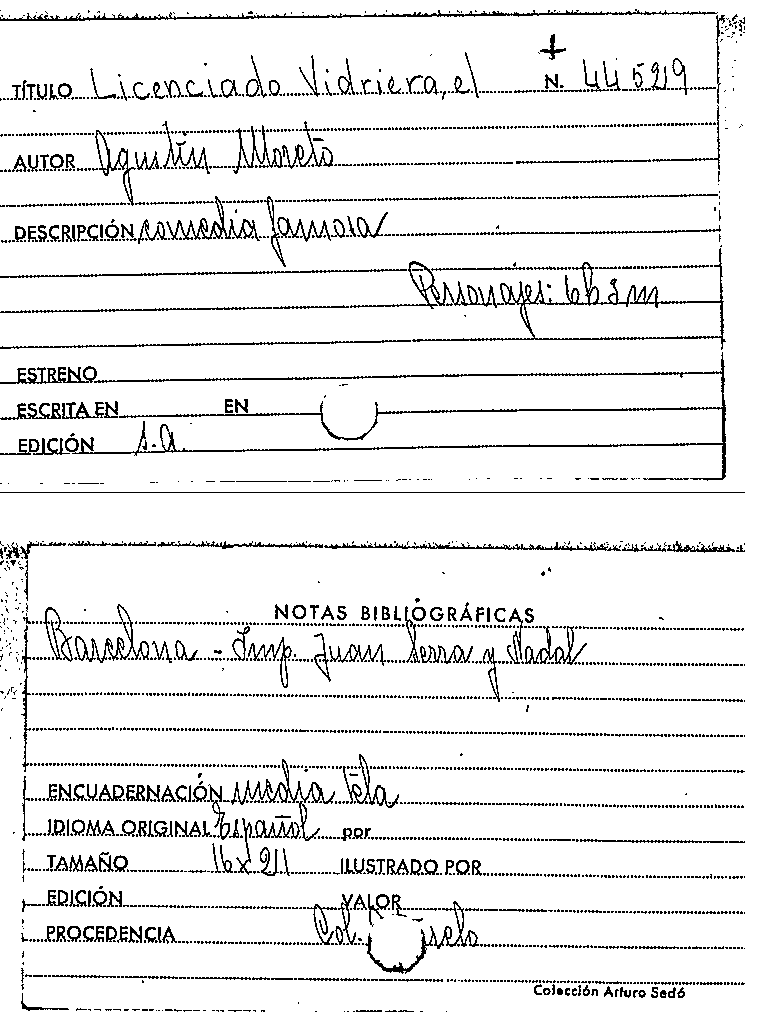 TÍTULO Licenciado Vidriera, el N. 44529
AUTOR Agustín Moreto
DESCRIPCIÓN comedia famosa
Personajes: 6h 3m
ESTRENO
ESCRITA EN EN
EDICIÓN s.a.
NOTAS BIBLIOGRÁFICAS
Barcelona - Imp. Juan Serra y Nadal
ENCUADERNACIÓN media tela
IDIOMA ORIGINAL Español por
TAMAÑO 16x21 ILUSTRADO POR
EDICIÓN VALOR
PROCEDENCIA Col.
Colección Arturo Sedó